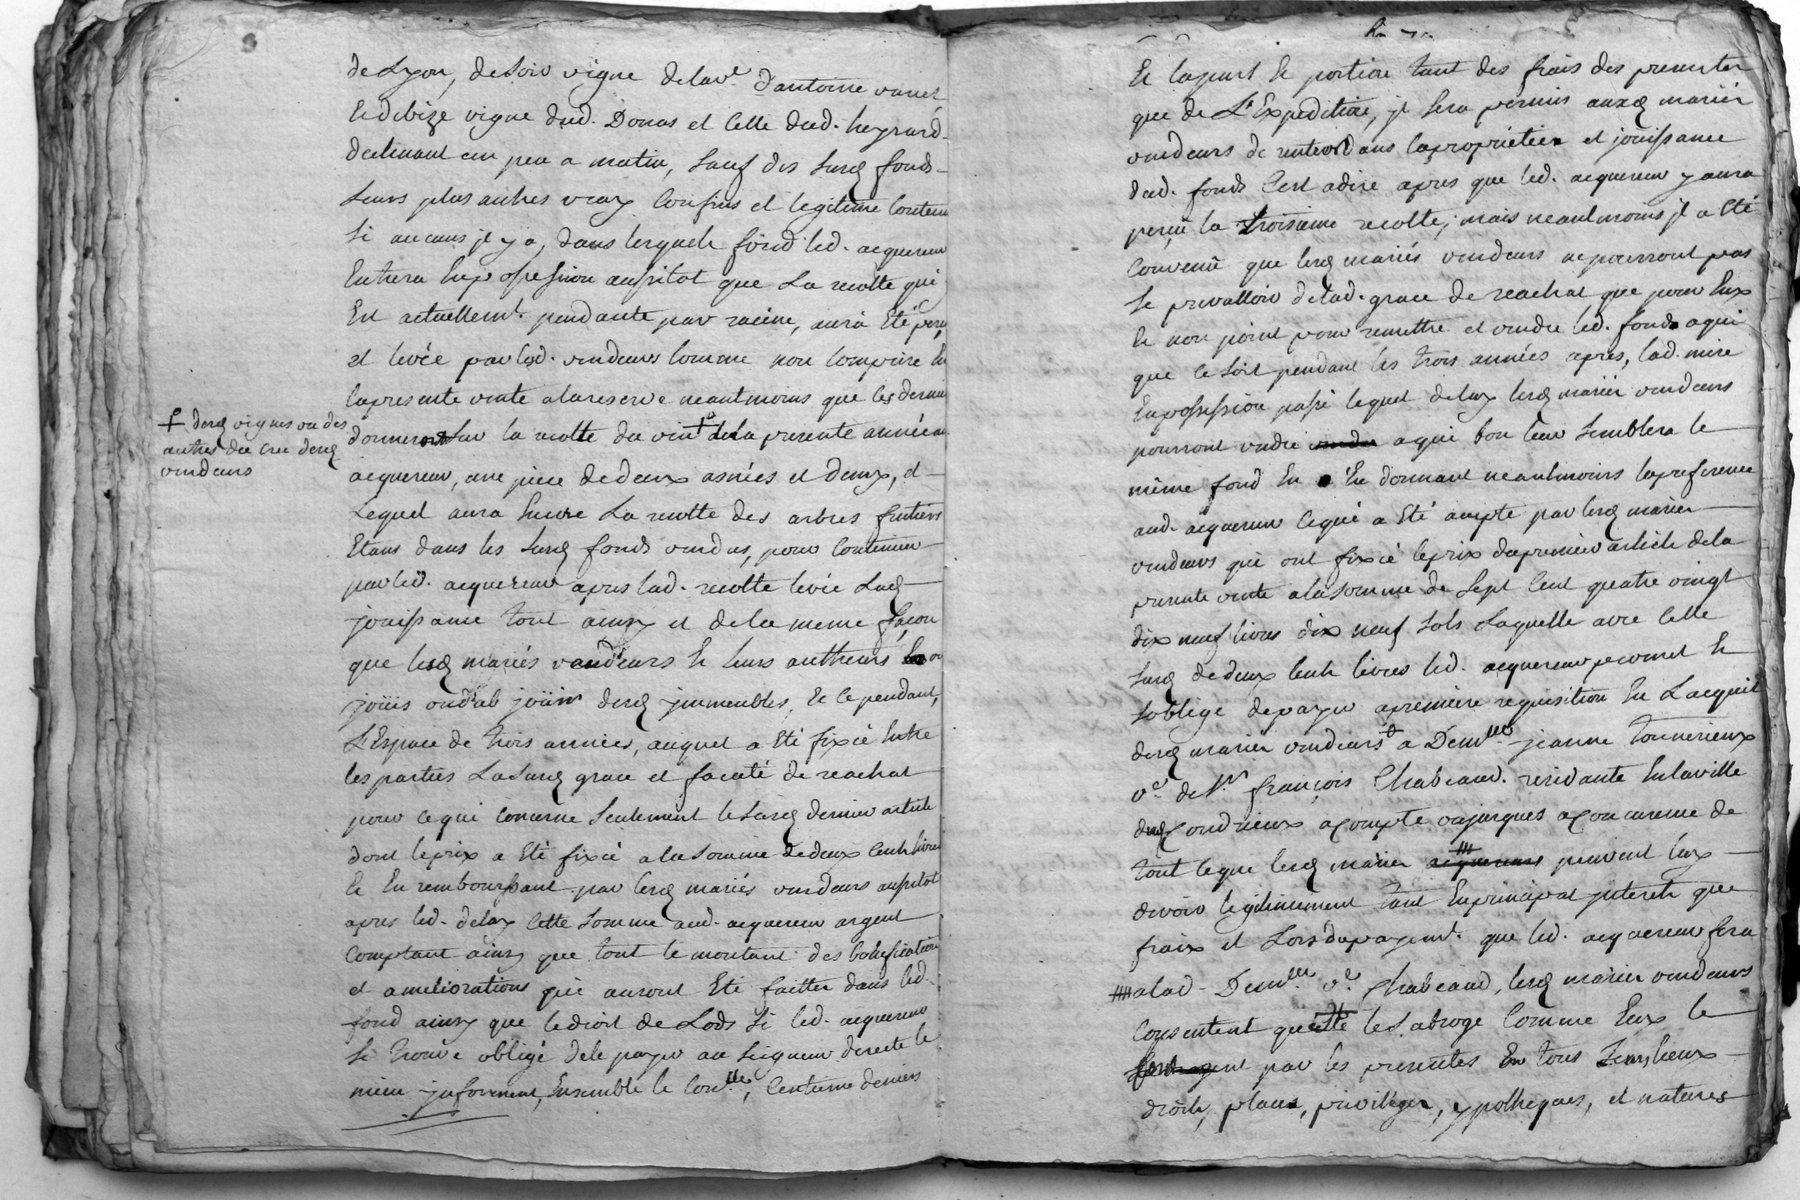 de Lyon, de soir vigne de la v.e d'antoine vanel
de bize vigne dud. Donas et celle dud. heyrard
declinant un peu a matin, sauf des susd fonds
leurs plus autres vrays confins et legitime contenu
si aucuns jl y a, dans lesquels fond led. acquereur
entrera en possession aussitot que La recolte qui
Est actuellem.t pendante par racine, aura Eté perçu
et levée par lesd. vendeurs comme non comprise En
la presente vente a la reserve neantmoins que les derniers
donneront sur la recolte du vin de la presente année au
acquereur, une piece de deux asnées et demy, et
Lequel aura Encore La recolte des arbres fruitiers
Etans dans les susd fonds vendus, pour continuer
par led. acquereur apres lad. recolte levée Lad
jouissance tout ainsy et de la meme façon
que lesd mariés vendeurs et leurs autheurs En ont
joüis ou dub joüir desd jmmeubles, Et cependant,
L'Espace de trois années, auquel a Eté fixée Entre
les parties La susd grace et faculté de reachat
pour ce qui concerne seulement le susd dernier article
dont le prix a Eté fixé a la somme de deux cents livres
Et En remboursant par lesd mariés vendeurs aussitot
apres led. delay cette somme aud. acquereur argent
comptant ainsy que tout le montant des bonification
et ameliorations qui auront Eté faittes dans led.
fond ainsy que le droit de Lods si led. acquereur
se trouve obligé de le payer au seigneur directe le
même jnforement, Ensemble le con.lle, centieme deniers
+ desd vignes ou des
autres du cru desd
vendeurs
Et la part Et portion tant des frais des presentes
que de L'Expedition, jl sera permis auxd mariés
vendeurs de rentrer dans la proprieté et jouissance
dud. fonds c'est adire apres que led. acquereur y aura
perçu la troisieme recolte, mais neantmoins jl a Eté
convenu que lesd mariés vendeurs ne pourront pas
se prevalloir de lad. grace de reachat que pour Eux
Et non point pour remettre et vendre led. fonds a qui
que ce soit pendant les trois années apres, lad. mise
En possession, passé lequel delay lesd mariés vendeurs
pourront vendre a qui bon leur semblera le
même fond En En donnant neantmoins la preference
aud. acquereur ce qui a Eté accepté par lesd mariés
vendeurs qui ont fixé le prix du premier article de la
presente vente a la somme de sept cent quatre vingt
dix neuf livres dix neuf sols Laquelle avec celle
susd de deux cents livres led. acquereur promet Et
s'oblige de payer a premiere requisition En L'acquit
desd mariés vendeurs a Dem.lle jeanne tournerieux
v.e de S.r françois Chabeaud. residante En la ville
dud Condrieux a compte ou jusques a concurrence de
tout ce que lesd mariés acquereurs peuvent luy
devoir legitimement tant En principal jnterets que
frais et Lors du payem.t que led. acquereur fera
a lad. Dem.lle v.e Chabeaud, lesd mariés vendeurs
consentent qu'elle le subroge comme Eux le
subrogent par les presentes En tous Leurs lieux
droits, place, privileges, ypotheques, et natures